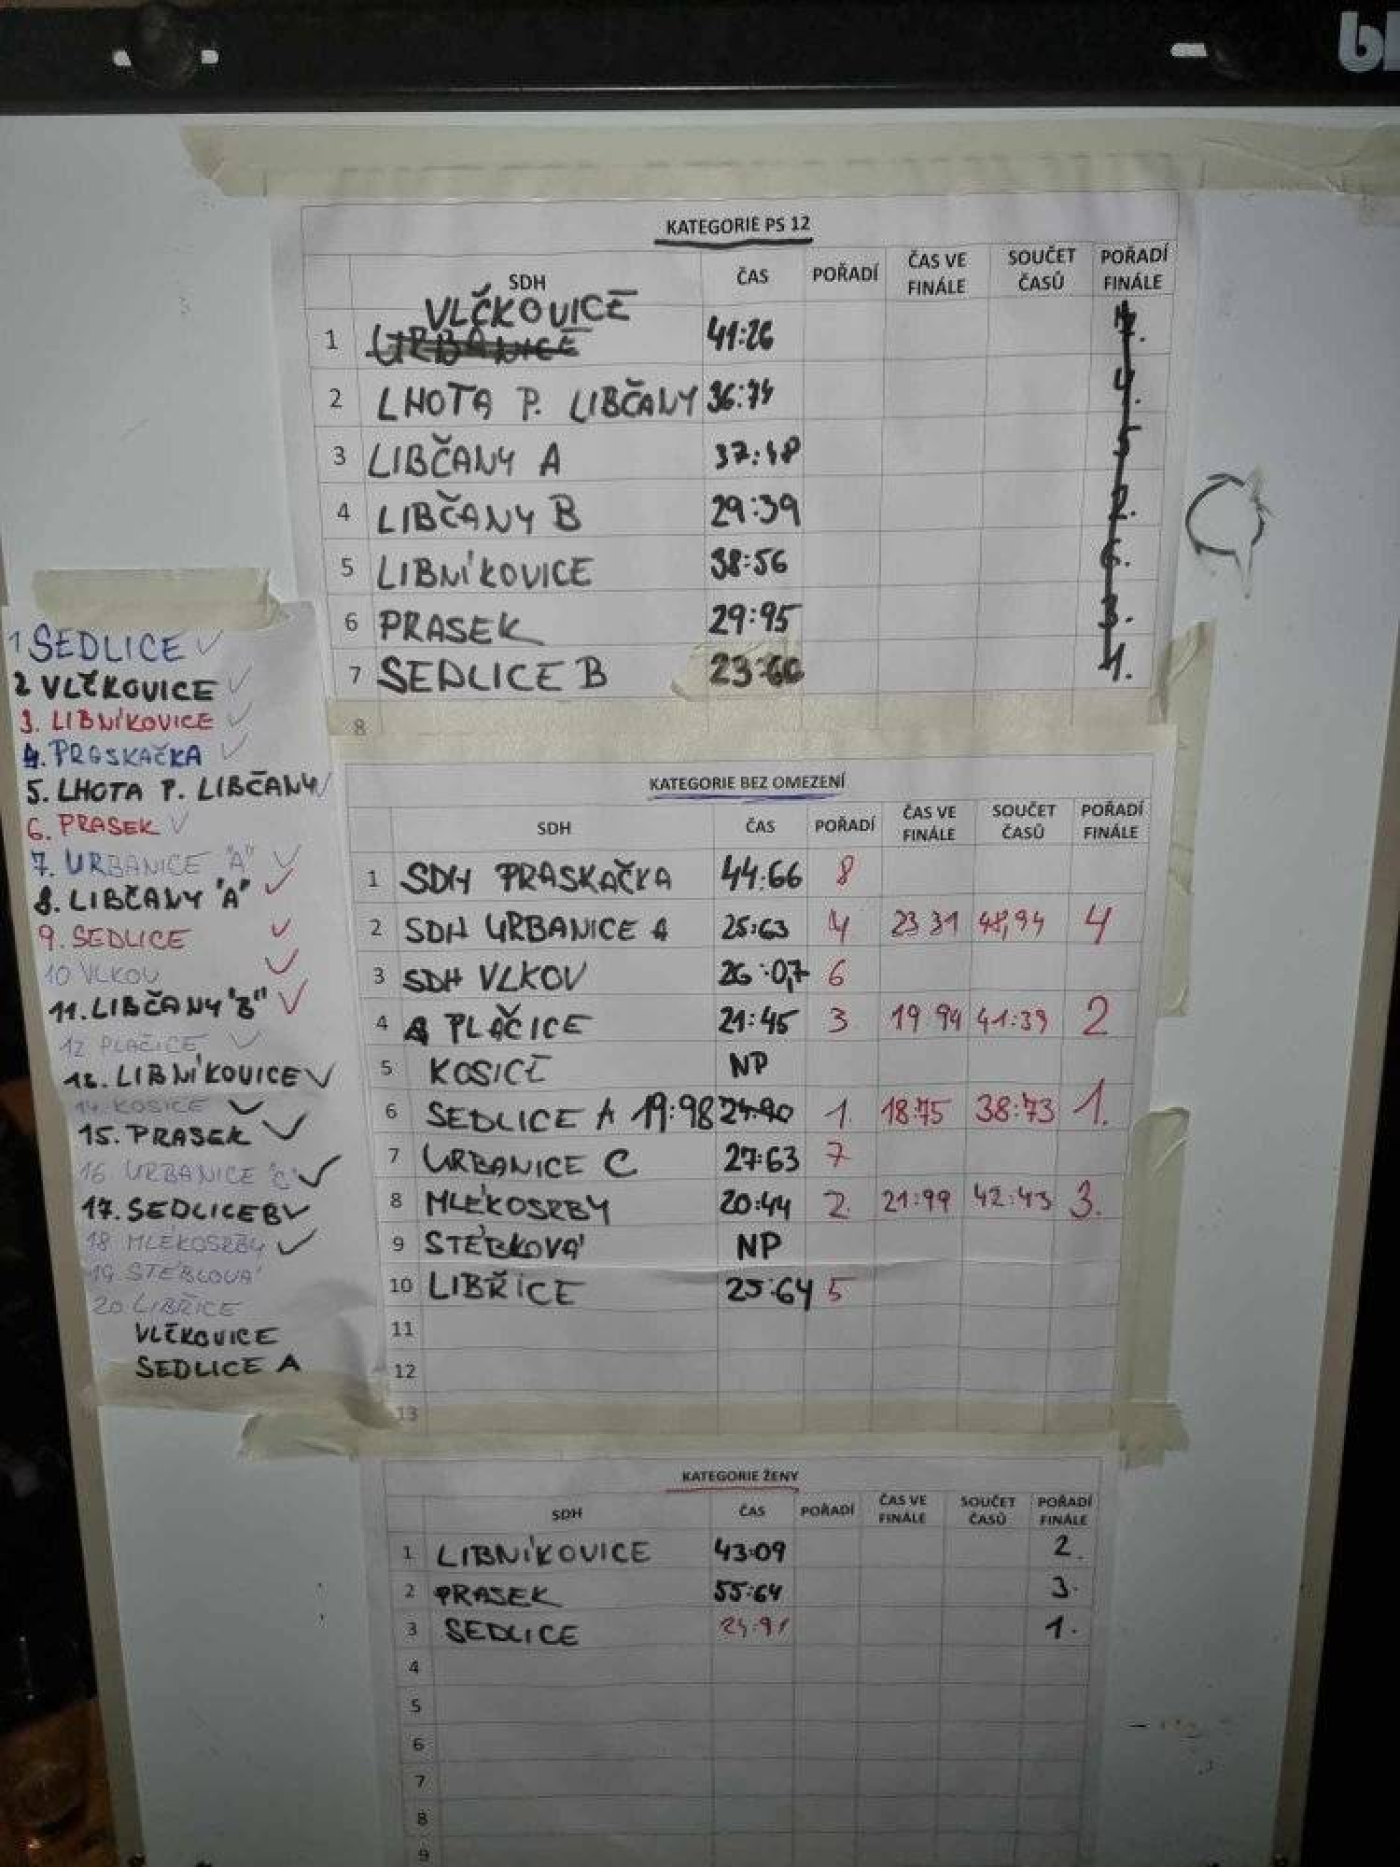 KATEGORIE PS 12
SDH ČAS POŘADÍ ČAS VE FINÁLE SOUČET ČASŮ POŘADÍ FINÁLE
VLČKOVICE
1 URBANICE 41:26 7.
2 LHOTA P. LIBČANY 36:74 4.
3 LIBČANY A 37:18 5
4 LIBČANY B 29:39 2.
5 LIBNÍKOVICE 38:56 6.
6 PRASEK 29:95 3.
7 SEDLICE B 23:60 1.
8
1 SEDLICE
2 VLČKOVICE
3. LIBNÍKOVICE
4. PRASKAČKA
5. LHOTA P. LIBČANY
6. PRASEK
7. URBANICE "A"
8. LIBČANY "A"
9. SEDLICE
10 VLKOV
11. LIBČANY "B"
12 PLAČICE
13. LIBNÍKOVICE
14. KOSICE
15. PRASEK
16 URBANICE "C"
17. SEDLICE B
18 MLÉKOSRBY
19. STÉBLOVÁ
20 LIBŘICE
VLČKOVICE
SEDLICE A
KATEGORIE BEZ OMEZENÍ
SDH ČAS POŘADÍ ČAS VE FINÁLE SOUČET ČASŮ POŘADÍ FINÁLE
1 SDH PRASKAČKA 44:66 8
2 SDH URBANICE A 25:63 4 23 31 48,94 4
3 SDH VLKOV 26:0,7 6
4 PLAČICE 21:45 3 19 94 41:39 2
5 KOSICE NP
6 SEDLICE A 19:98 24:90 1. 18:75 38:73 1.
7 URBANICE C 27:63 7
8 MLÉKOSRBY 20:44 2. 21:99 42:43 3.
9 STÉBKOVÁ NP
10 LIBŘICE 25:64 5
11
12
13
KATEGORIE ŽENY
SDH ČAS POŘADÍ ČAS VE FINÁLE SOUČET ČASŮ POŘADÍ FINÁLE
1 LIBNÍKOVICE 43:09 2.
2 PRASEK 55:64 3.
3 SEDLICE 1.
4
5
6
7
8
9